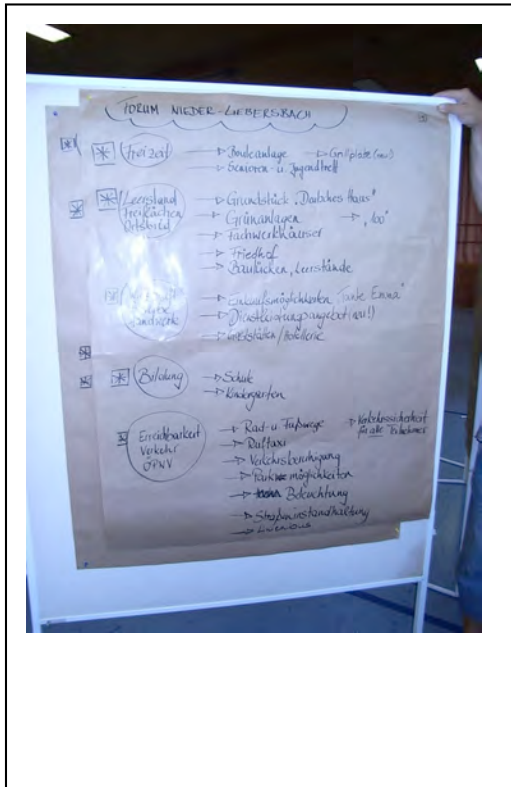 FORUM NIEDER-LIEBERSBACH
Freizeit
→ Bouleanlage → Grillplätze (neu)
→ Senioren- u. Jugendtreff
Leerstand
Freiflächen
Ortsbild
→ Grundstück "Haus"
→ Grünanlagen → "100"
→ Fachwerkhäuser
→ Friedhof
→ Baulücken, Leerstände
Handwerk
→ Einkaufsmöglichkeiten "Tante Emma"
→ Dienstleistungsangebot (neu!)
→ Gaststätten/Hotellerie
Bildung
→ Schule
→ Kindergarten
Erreichbarkeit
Verkehr
ÖPNV
→ Rad- u. Fußwege → Verkehrssicherheit
für alle Teilnehmer
→ Ruftaxi
→ Verkehrsberuhigung
→ Parkmöglichkeiten
→ Beleuchtung
→ Straßeninstandhaltung
→ Linienbus